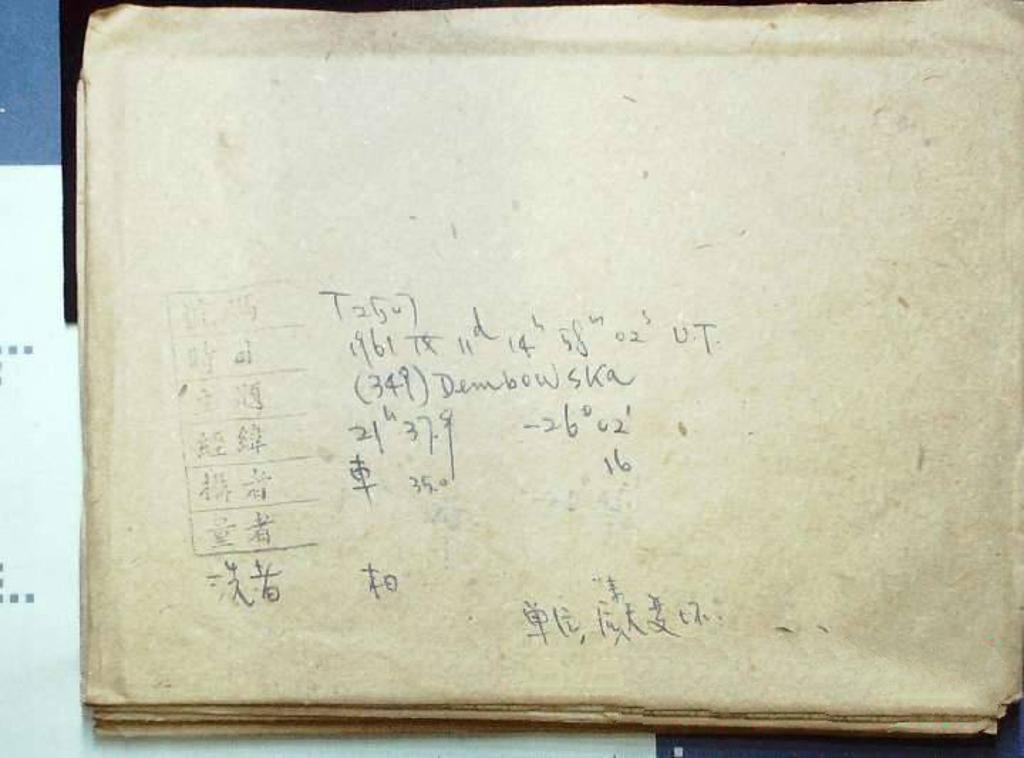 號碼 T2507
時曲 1961 IX 11ᵈ 14ʰ 58ᵐ 02ˢ U.T.
主題 (349) Dembowska
經緯 21ʰ 37.9 -26° 02'
攝者 車 35.0 16
量者
洗者 相
单位,